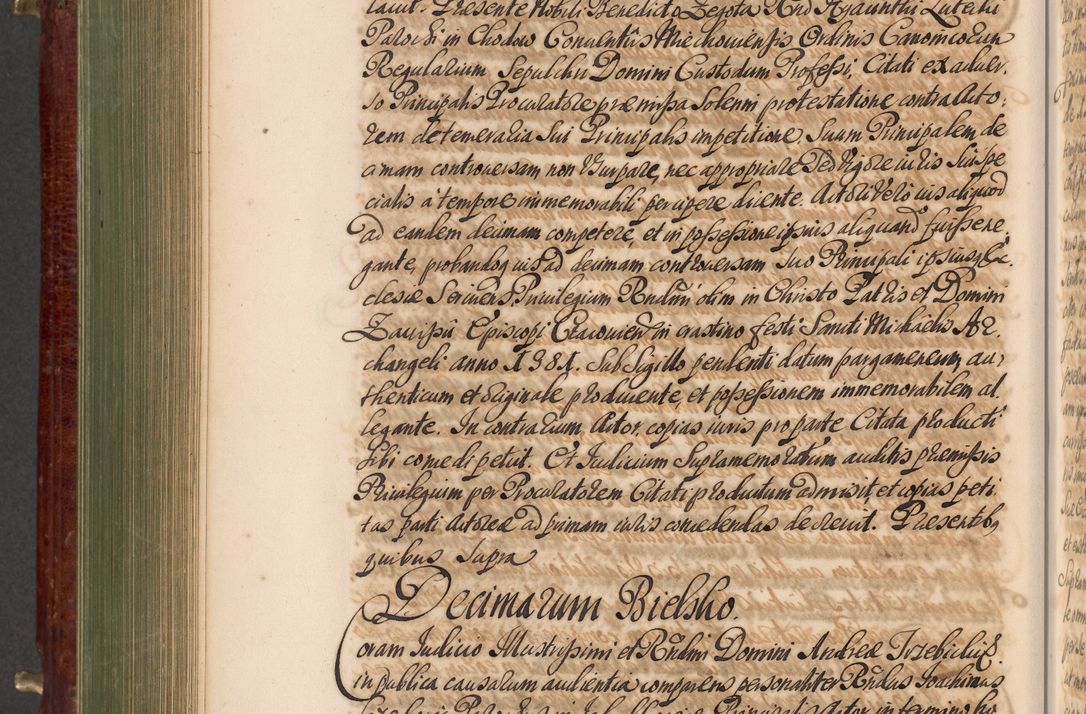 lavit. Presente Nobili Benedicto Zegota And Hyacinthi Luteki
Parochi in Chodow Conventus Miechoviensis Ordinis Canonicorum
Regularium Sepulchri Domini Custodum Professi, Citati ex adver,
so Principalis Procuratore præmissa Solenni protestatione contra Acto,
rem de temeraria Sui Principalis impetitione, Suum Principalem de
cimam controversam non Usurpare, nec appropriare Sed Vigore iuris Sui spe
cialis a tempore immemorabili percipere dicente. Actori Vero ius aliquod
ad eandem decimam competere, et in possessione ipsius aliquando fuisse ne,
gante, probandoq ius ad decimam controversam Suo Principali ipsiusq Ec,
clesiæ Serviens Privilegium Rndmi olim in Christo Patris et Domini
Zavissii Episcopi Cracovien in crastino festi Sancti Michaelis Ar
changeli anno 1381. Sub Sigillo pendenti datum pargameneum au,
thenticum et originale producente, et possessionem immemorabilem al
legante. In contrarium Actor copias iuris pro parte Citata producti
sibi concedi petiit. Et Iudicium Supramemoratum auditis præmissis
Privilegium per Procuratorem Citati productum admisit, et copias peti
tas parti Actoreæ ad primam iuris concedendas decrevit. Præsentib,
quibus Supra
Decimarum Bielsko.
Coram Iudicio Illustrissimi et Rndmi Domini Andreæ Trzebicki
in publica causarum audientia comparens personaliter Rndus Ioachimus